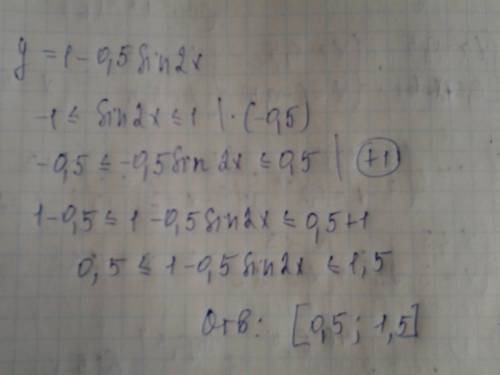 y = 1 - 0,5 sin2x
-1 ≤ sin2x ≤ 1 | · (-0,5)
-0,5 ≤ -0,5 sin 2x ≤ 0,5 | +1
1-0,5 ≤ 1 - 0,5 sin2x ≤ 0,5+1
0,5 ≤ 1-0,5 sin2x ≤ 1,5
Отв: [0,5 ; 1,5]